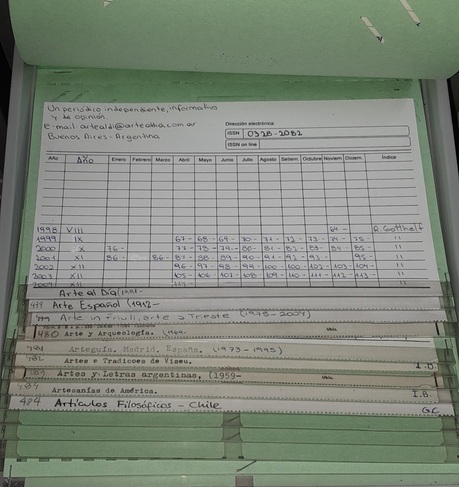 Un periódico independiente, informativo
y de opinión.
e-mail: artealdi@artealdia.com.ar
Buenos Aires - Argentina
Dirección electrónica:
ISSN 0328-2082
ISSN on line
Año Año Enero Febrero Marzo Abril Mayo Junio Julio Agosto Setiem. Octubre Noviem. Diciem. Índice
1998 VIII 64- R. Gotthelf
1999 IX 67- 68- 69- 70- 71- 72- 73- 74- 75- "
2000 X 76- 77- 78- 79- 80- 81- 82- 83- 84- 85- "
2001 XI 86- 86- 87- 88- 89- 90- 91- 92- 93- 95- "
2002 XII 96- 97- 98- 99- 100- 100- 102- 103- 104- "
2003 XIII 105- 106- 107- 108- 109- 110- 111- 112- 113- "
Arte al Día
Arte Español (1912-
Arte in Friuli, arte a Trieste (1975-2004)
480 Arte y Arqueología.
Arteguía. Madrid. España. (1973-1995)
Artes e Tradicoes de Viseu. I.B.
Artes y Letras argentinas, (1959-
Artesanías de América. I.B.
484 Artículos Filosóficos - Chile GC